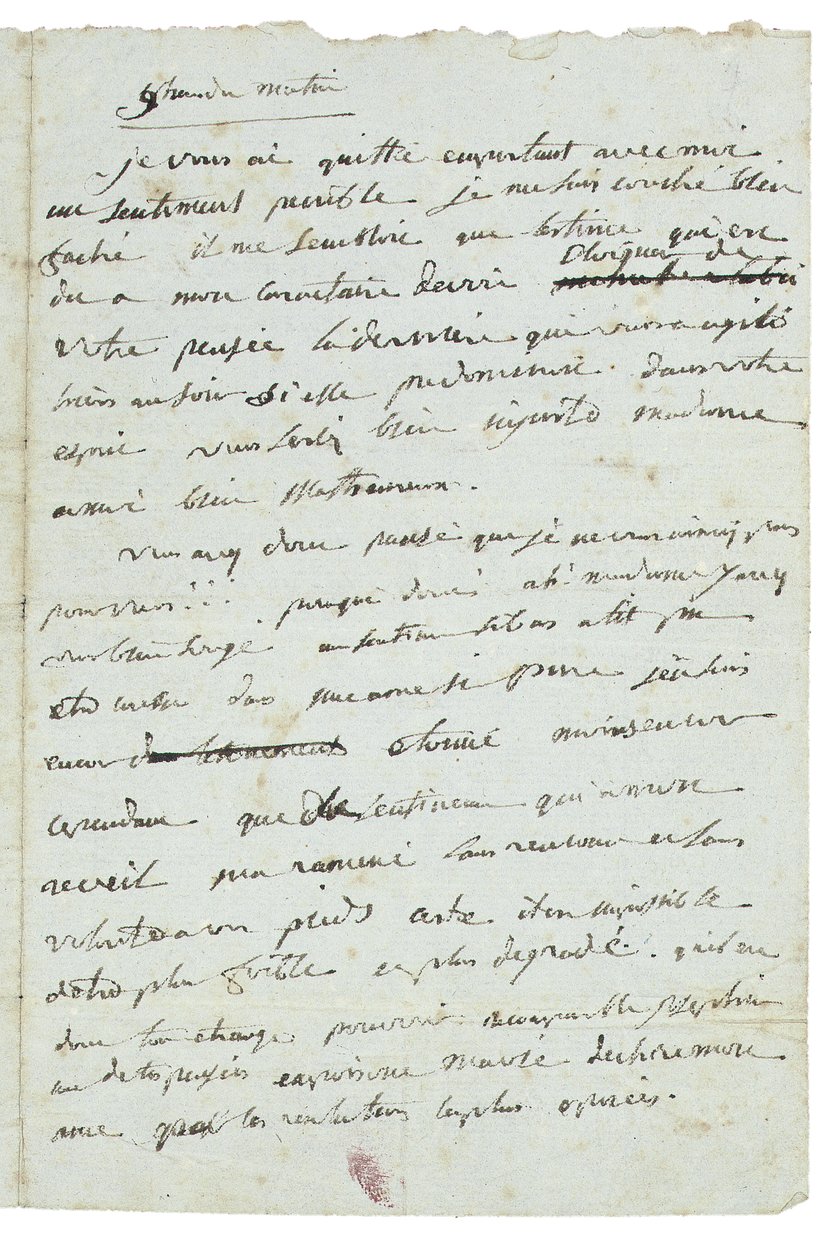 9 heures du matin
je vous ai quitté emportant avec moi
un sentiment penible je me suis couché bien
faché il me sembloit que lestime qui est
du a mon caractaire devoit eloigner de
votre pensée la derniere qui vous agité
hiers au soir si elle predominoit dans votre
esprit vous seriez bien injuste madame
et moi bien malheureux.
vous avez donc pensé que je ne vous aimez pas
pour vous!!! pour qui donc ah madame
un sentiment si bas a til pu
etre dans une ame si pure j'en suis
encor etonné moins encor
cependant que du sentiment qui a mon
reveil ma ramené sans rencune et sans
volonté a vos pieds certe il est impossible
detre plus foible et plus degradé. quel est
donc ton etrange pouvoir incomparable josephine
une de tes pensées empoisone ma vie dechire mon
ame par les resolutions les plus oposées.